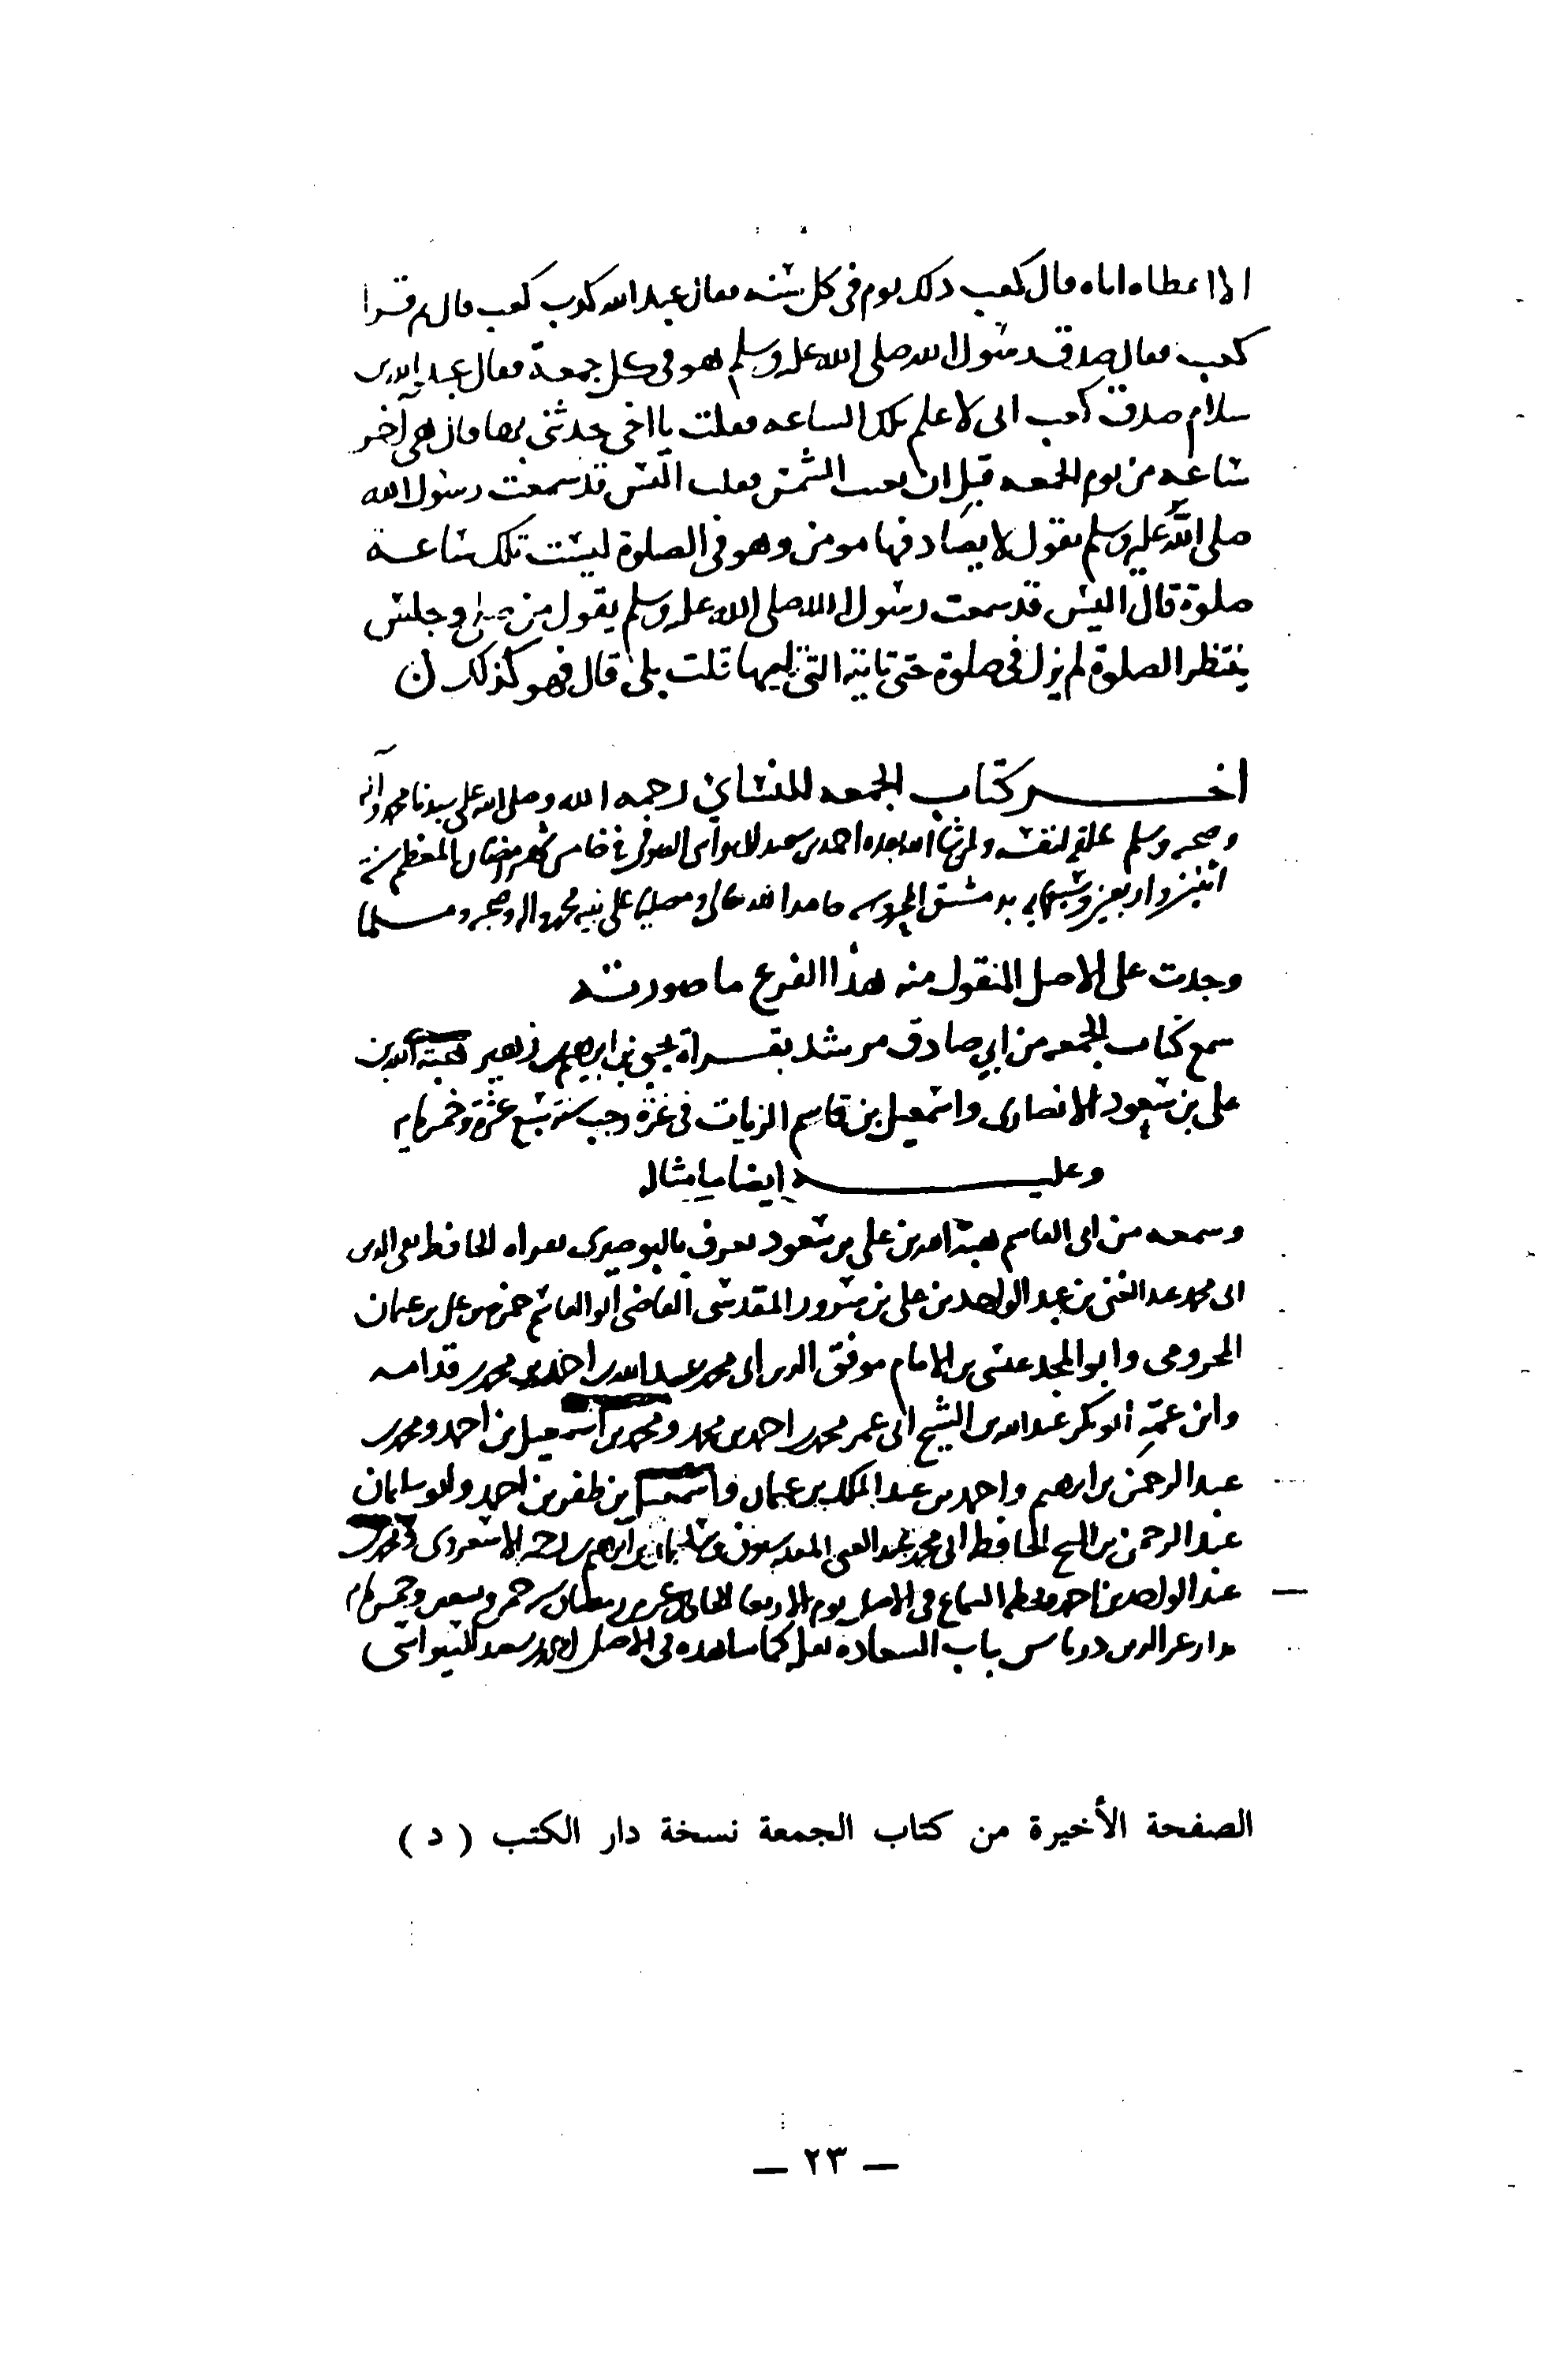 الا اعطاه اياه قال كعب ذلك يوم في كل سنه فقال عبد الله كذب كعب قال ثم قرا
كعب فقال صدق رسول الله صلى الله عليه وسلم هو في كل جمعة فقال عبد الله بن
سلام صدق كعب اني لاعلم تلك الساعه فقلت يا اخي حدثني بها قال هي آخر
ساعه من يوم الجمعه قبل ان تغيب الشمس فقلت اليس قد سمعت رسول الله
صلى الله عليه وسلم يقول لا يصادفها مومن وهو في الصلوة ليست تلك ساعة
صلوة قال اليس قد سمعت رسول الله صلى الله عليه وسلم يقول من صلى وجلس
ينتظر الصلوة لم يزل في صلوة حتى تاتيه التي تليها قلت بلى قال فهو كذلك
اخر كتاب الجمعه للنسائي رحمه الله وصلى الله على سيدنا محمد وآله
وصحبه وسلم علقه لنفسه ولمن شا الله بعده احمد بن سعيد السيواسي الصوفي في خامس شهر رمضان المعظم سنة
اثنين واربعين وسبعمايه بدمشق المحروسه حامدا لله تعالى ومصليا على نبيه محمد واله وصحبه ومسلما
وجدت على الاصل المنقول منه هذا الفرع ما صورته
سمع كتاب الجمعه من ابي صادق مرشد بقراة يحيى بن ابرهيم بن زهير هبة الله بن
علي بن سعود الانصاري واسمعيل بن قاسم الزيات في غرة رجب سنة سبع عشرة وخمسمايه
وعليه ايضا ما مثاله
وسمعه من ابي القاسم هبة الله بن علي بن سعود يعرف بالبوصيري بقراه الحافظ تقي الدين
ابي محمد عبد الغني بن عبد الواحد بن علي بن سرور المقدسي القاضي ابو القاسم حمزه بن علي بن عثمان
المخزومي وابو المجد عيسى بن الامام موفق الدين ابي محمد عبد الله بن احمد بن محمد بن قدامه
وابن عمّه ابو بكر عبد الله بن الشيخ ابي عمر محمد بن احمد بن محمد ومحمد بن اسمعيل بن احمد ومحمد بن
عبد الرحمن بن ابرهيم واحمد بن عبد الملك بن عثمان واسمعيل بن ظفر بن احمد وابو سليمان
عبد الرحمن بن الشيخ الحافظ ابي محمد عبد الغني المقدسيون وسليمان بن ابرهيم بن رحمه الاسعردي ومحمد بن
عبد الواحد بن احمد وبخطه السماع في الاصل يوم الاربعا الحادي عشر من رمضان سنة خمس وتسعين وخمسمايه
بدار عز الدين درباس بباب السعاده نقله كما شاهده في الاصل احمد بن سعيد السيواسي
الصفحة الأخيرة من كتاب الجمعة نسخة دار الكتب ( د )
— ٢٣ —